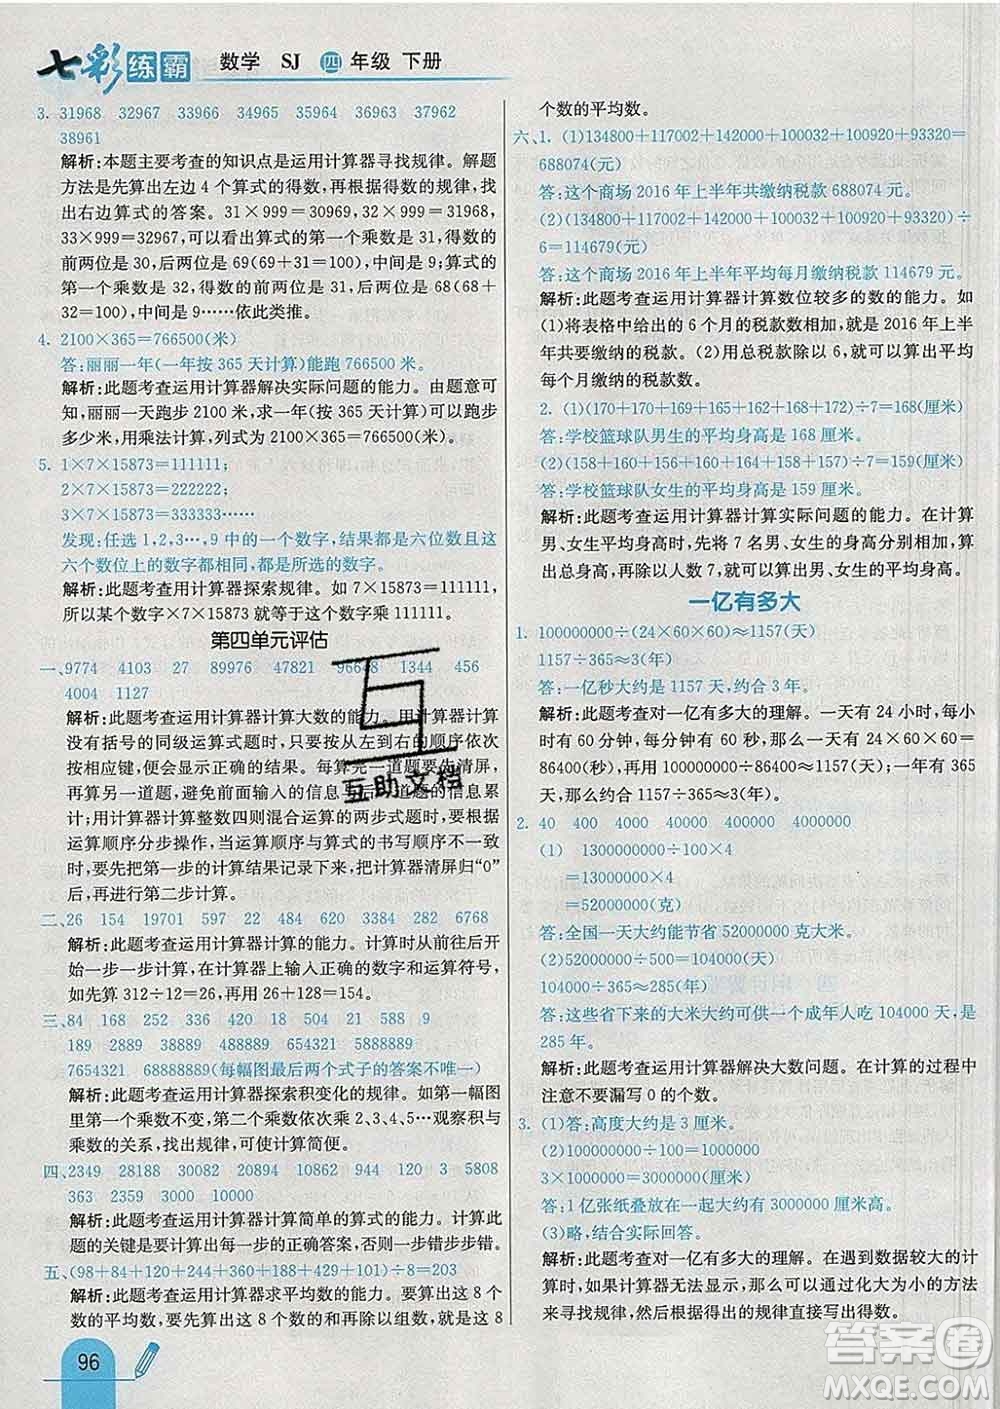 七彩练霸 数学 SJ 四年级 下册
3. 31968 32967 33966 34965 35964 36963 37962
38961
解析:本题主要考查的知识点是运用计算器寻找规律。解题
方法是先算出左边 4 个算式的得数,再根据得数的规律,找
出右边算式的答案。31×999=30969,32×999=31968,
33×999=32967,可以看出算式的第一个乘数是 31,得数的
前两位应是 30,后两位应是 69(69+31=100),中间是 9;算式的
第一个乘数是 32,得数的前两位应是 31,后两位应是 68(68
+32=100),中间是 9……依此类推。
4. 2100×365=766500(米)
答:丽丽一年(一年按 365 天计算)能跑 766500 米。
解析:此题考查运用计算器解决实际问题的能力。由题意可
知,丽丽一天跑步 2100 米,求一年(按 365 天计算)可以跑步
多少米,用乘法计算,列式为 2100×365=766500(米)。
5. 1×7×15873=111111;
2×7×15873=222222;
3×7×15873=333333……
发现:任选 1,2,3…,9 中的一个数字,结果都是六位数且这
六个数位上的数字都相同,都是所选的数字。
解析:此题考查用计算器探索规律。如 7×15873=111111,
所以某个数字×7×15873 就等于这个数字乘 111111。
第四单元评估
一、9774 4103 27 89976 47821 96648 1344 456
4004 1127
解析:此题考查运用计算器计算大数的能力。用计算器计算
没有括号的同级运算式题时,只要按从左到右的顺序依次
按相应键,便会显示计算的结果。每算完一道题要先清屏,
再算另一道题,避免前面输入的信息与后面输入的信息累
计;用计算器计算整数四则混合运算的两步式题时,要根据
运算顺序分步操作。当运算顺序与算式的书写顺序不一致
时,要先把前面的计算结果记录下来,把计算器清屏归“0”
后,再进行第二步计算。
二、26 154 19701 597 22 484 620 3383 282 6768
解析:此题考查运用计算器计算的能力。计算时从前往后
一步一步计算,在计算器上输入正确的数字和运算符号,
如先算 312÷12=26,再用 26+128=154。
三、84 168 252 336 420 18504 504 21 588 9
189 2889 38889 488889 54321 654321
7654321 68888889(每幅图最后两个式子的答案不唯一)
解析:此题考查运用计算器探索积变化的规律。如第一幅图
里第一个乘数不变,第二个乘数依次乘 2、3、4、5…观察积与
乘数的关系,找出规律,可使计算简便。
四、2349 28188 30082 20894 10206 10209 3 5808
363 2359 3000 10000
解析:此题考查运用计算器计算简单的算式的能力。计算此
题的关键是要计算出每一步的正确答案,否则一步错步步错。
五、(98+84+120+244+360+188+363+167)÷8=203
解析:此题考查运用计算器求平均数的能力。要算出这 8 个
数的平均数,要先算出这 8 个数的和再除以组数,就是这 8
个数的平均数。
六、1. (1)134800+117002+142000+100032+100920+93320=
688074(元)
答:这个商场 2016 年上半年共缴纳税款 688074 元。
(2)(134800+117002+142000+100032+100920+93320)÷
6=114679(元)
答:这个商场 2016 年上半年平均每月缴纳税款 114679 元。
解析:此题考查运用计算器计算数位较多的数的能力。如
(1)将表格中给出的 6 个月的税款数相加,就是 2016 年上半
年共要缴纳的税款。(2)用总税款除以 6,就可以算出平均
每个月缴纳的税款数。
2. (1)(170+170+170+168+164+162+172)÷7=168(厘米)
答:学校篮球队男生的平均身高是 168 厘米。
(2)(158+160+160+151+158+160+166)÷7=159(厘米)
答:学校篮球队女生的平均身高是 159 厘米。
解析:此题考查运用计算器计算实际问题的能力。在计算
男、女生平均身高时,先将 7 名男、女生的身高分别相加,算
出总身高,再除以人数 7,就可以算出男、女生的平均身高。
一亿有多大
1. 100000000÷(24×60×60)≈1157(天)
1157÷365≈3(年)
答:一亿秒大约是 1157 天,大约合 3 年。
解析:此题考查对一亿有多大的理解。一天有 24 小时,每小时
有 60 分钟,每分钟有 60 秒,那么一天有 24×60×60=
86400(秒),再用 100000000÷86400≈1157(天)。一年有 365
天,那么一亿秒大约是 1157÷365≈3(年)。
2. 40 400 4000 40000 400000 4000000
(1) 1300000000÷100×4
=13000000×4
=52000000(克)
答:全国一天大约能节省 52000000 克大米。
(2)52000000÷500=104000(天)
104000÷365≈285(年)
答:这些省下来的大米大约可供一个成年人吃 104000 天,是
285 年。
解析:此题考查运用计算器解决大数问题。在计算的过程中
注意不要漏写 0 的个数。
3. (1)答:高度大约是 3 厘米。
(2)100000000÷100=1000000
3×1000000=3000000(厘米)
答:1 亿张纸叠放在一起大约有 3000000 厘米高。
(3)略,结合实际回答。
解析:此题考查对一亿有多大的理解。在遇到数据较大的计
算时,如果计算器无法显示,那么可以通过化大为小的方法
来寻找规律,然后根据得出的规律直接写出得数。
互助文档
96
答案圈
MXQE.COM